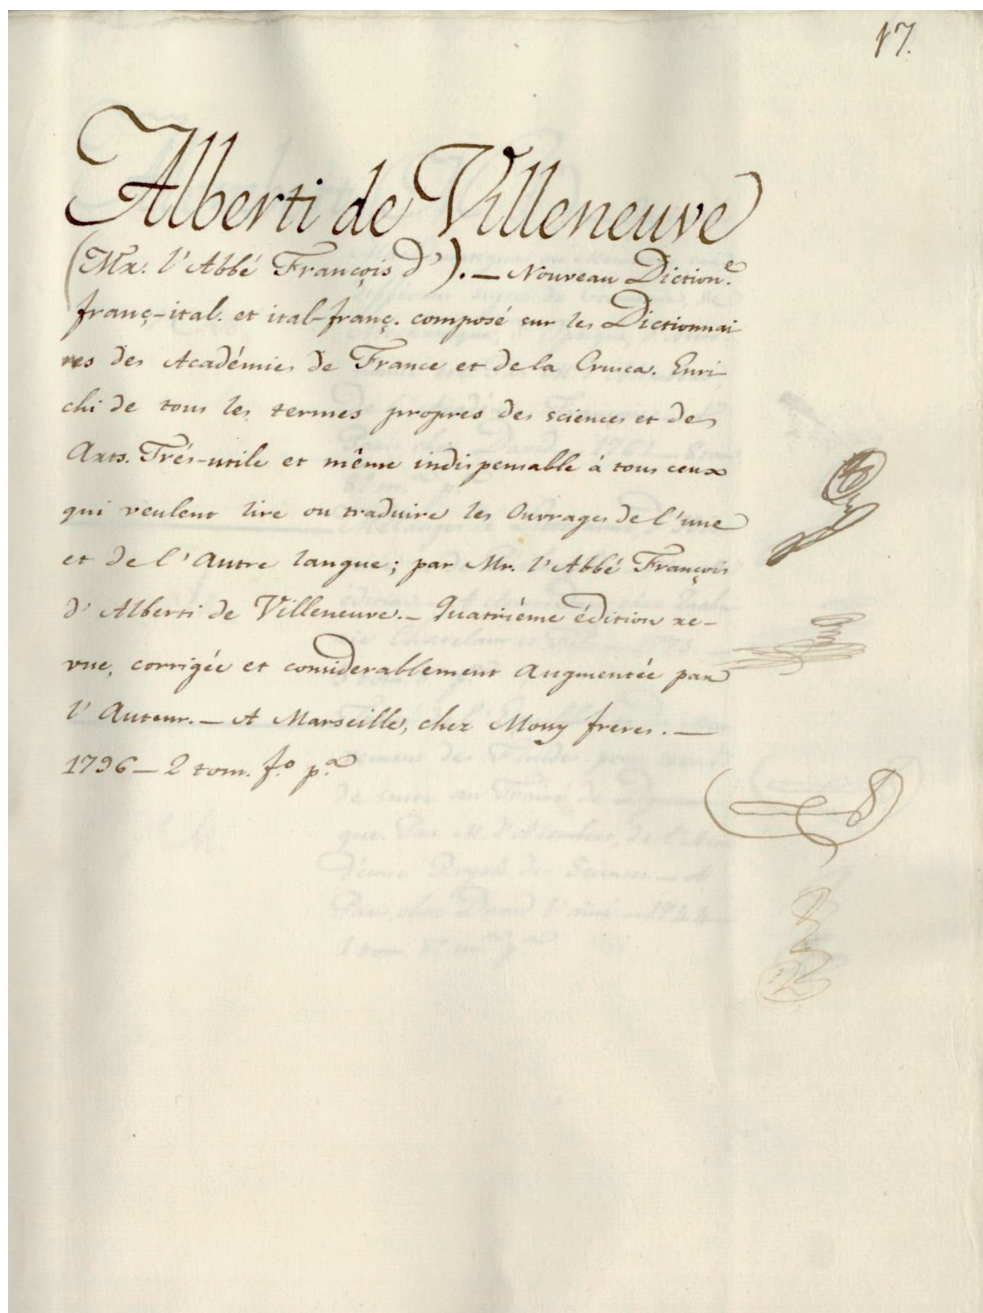 17.
Alberti de Villeneuve
(Mr. l'Abbé François d'). — Nouveau Diction.e
franç-ital. et ital-franç. composé sur les Dictionnai
res des Académies de France et de la Crusca. Enri-
chi de tous les termes propres des sciences et des
Arts. Trés-utile et même indispensable à tous ceux
qui veulent lire ou traduire les Ouvrages de l'une
et de l'Autre langue; par Mr. l'Abbé François
d'Alberti de Villeneuve. — Quatriéme édition re-
vue, corrigée et considerablement Augmentée par
l'Auteur. — A Marseille, chez Mouy freres. —
1796 — 2 tom. f.o p.a